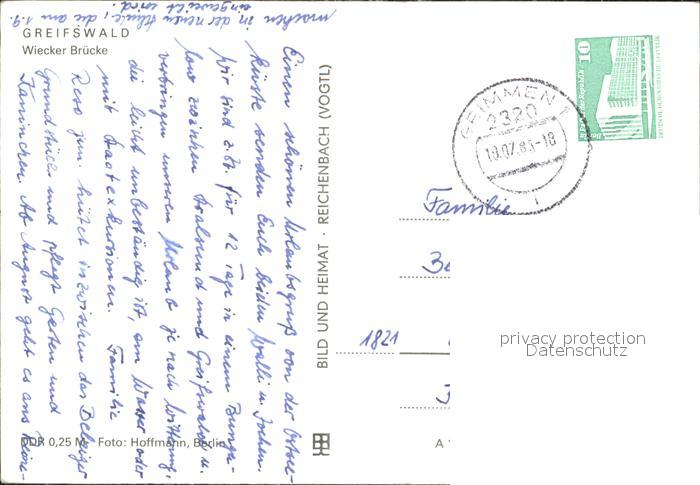 GREIFSWALD
Wiecker Brücke
Einen schönen Urlaubsgruß von der Ostsee-
küste senden Euch beiden Walli u. Jochen.
Wir sind z.Zt. für 12 Tage in einem Bunga-
low zwischen Stralsund und Greifswald u.
verbringen unseren Urlaub je nach Witterung,
die leicht unbeständig ist, am Wasser oder
mit Stadtexkursionen. Familie
hütet inzwischen das Belziger
Grundstück und pflegt Garten und
Kaninchen. Ab August geht es ans
machen in der neuen, die am 1.9.
eingeweiht wird.
DDR 0,25 M · Foto: Hoffmann, Berlin
BILD UND HEIMAT · REICHENBACH (VOGTL)
A 1
GRIMMEN 1
2320
10.07.85-18
10
Familie
1821
privacy protection
Datenschutz